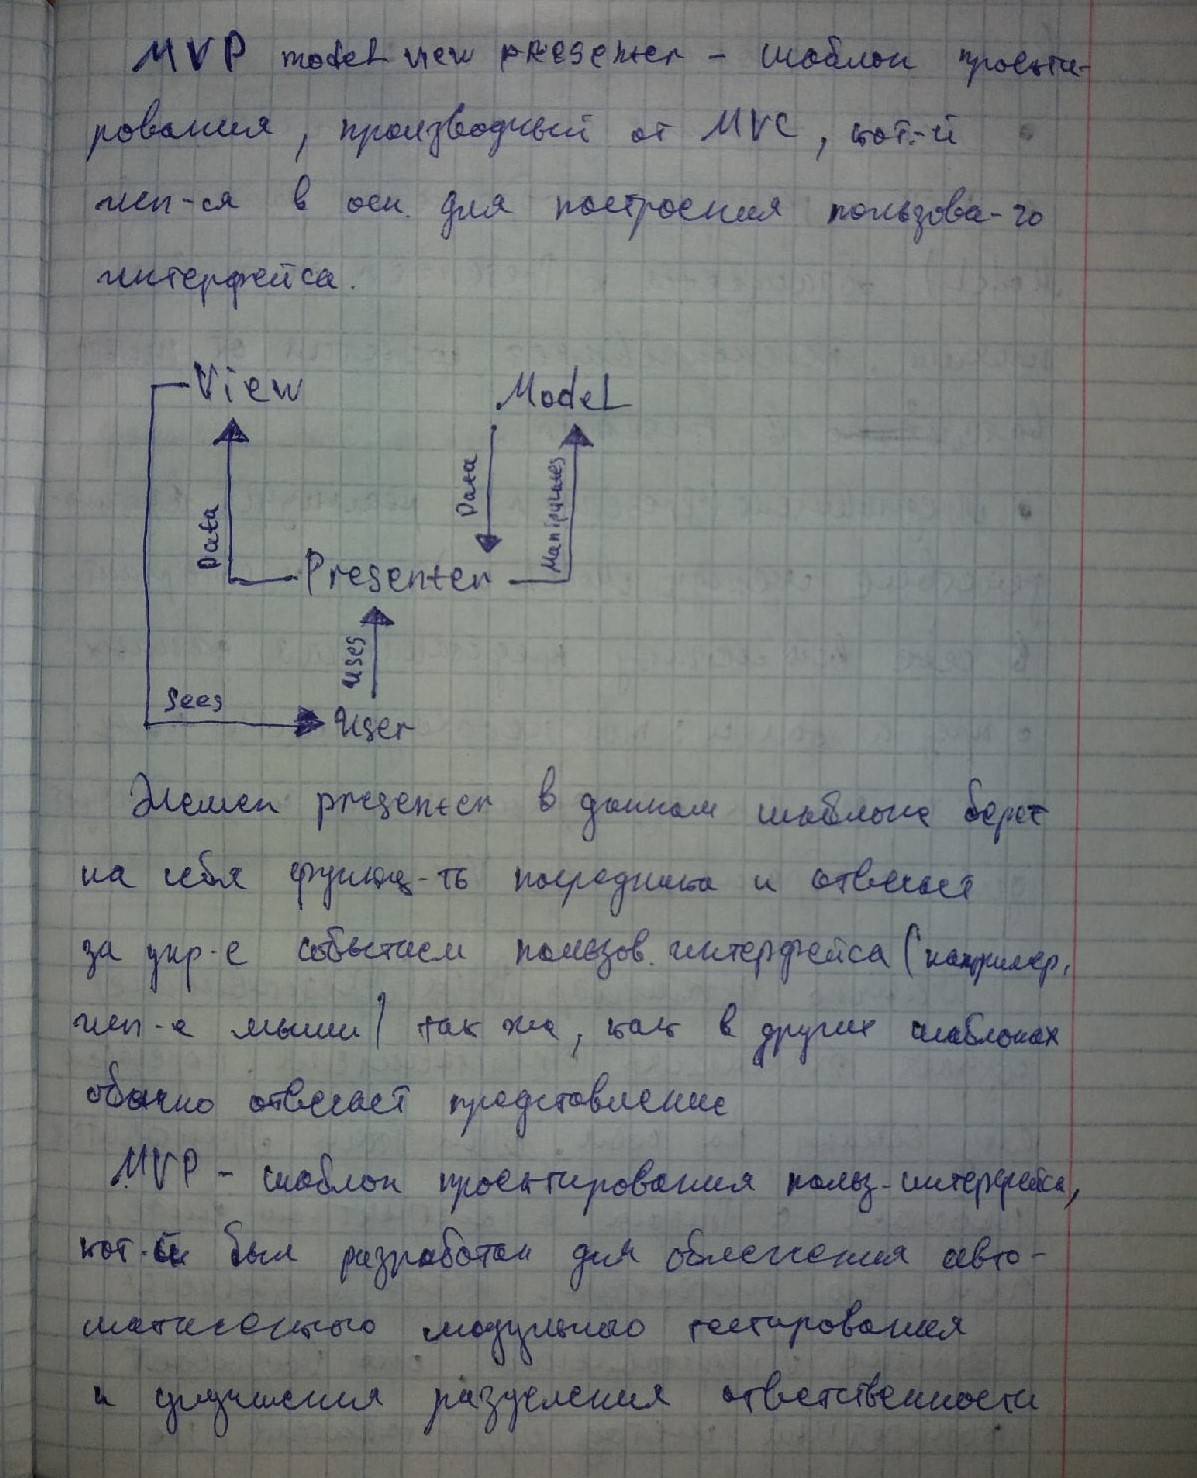 MVP model view presenter - шаблон проекти-
рования, производный от MVC, кот.-й
исп-ся в осн. для построения пользова-го
интерфейса.
View Model
Data Data Manipulates
Presenter
Uses
Sees
User
Элемен presenter в данном шаблоне берет
на себя функц-ть посредника и отвечает
за упр-е событием пользов. интерфейса (например,
исп-е мыши) так же, как в других шаблонах
обычно отвечает представление
MVP - шаблон проектирования польз-интерфейса,
кот-й был разработан для облегчения авто-
матического модульного тестирования
и улучшения разделения ответственности